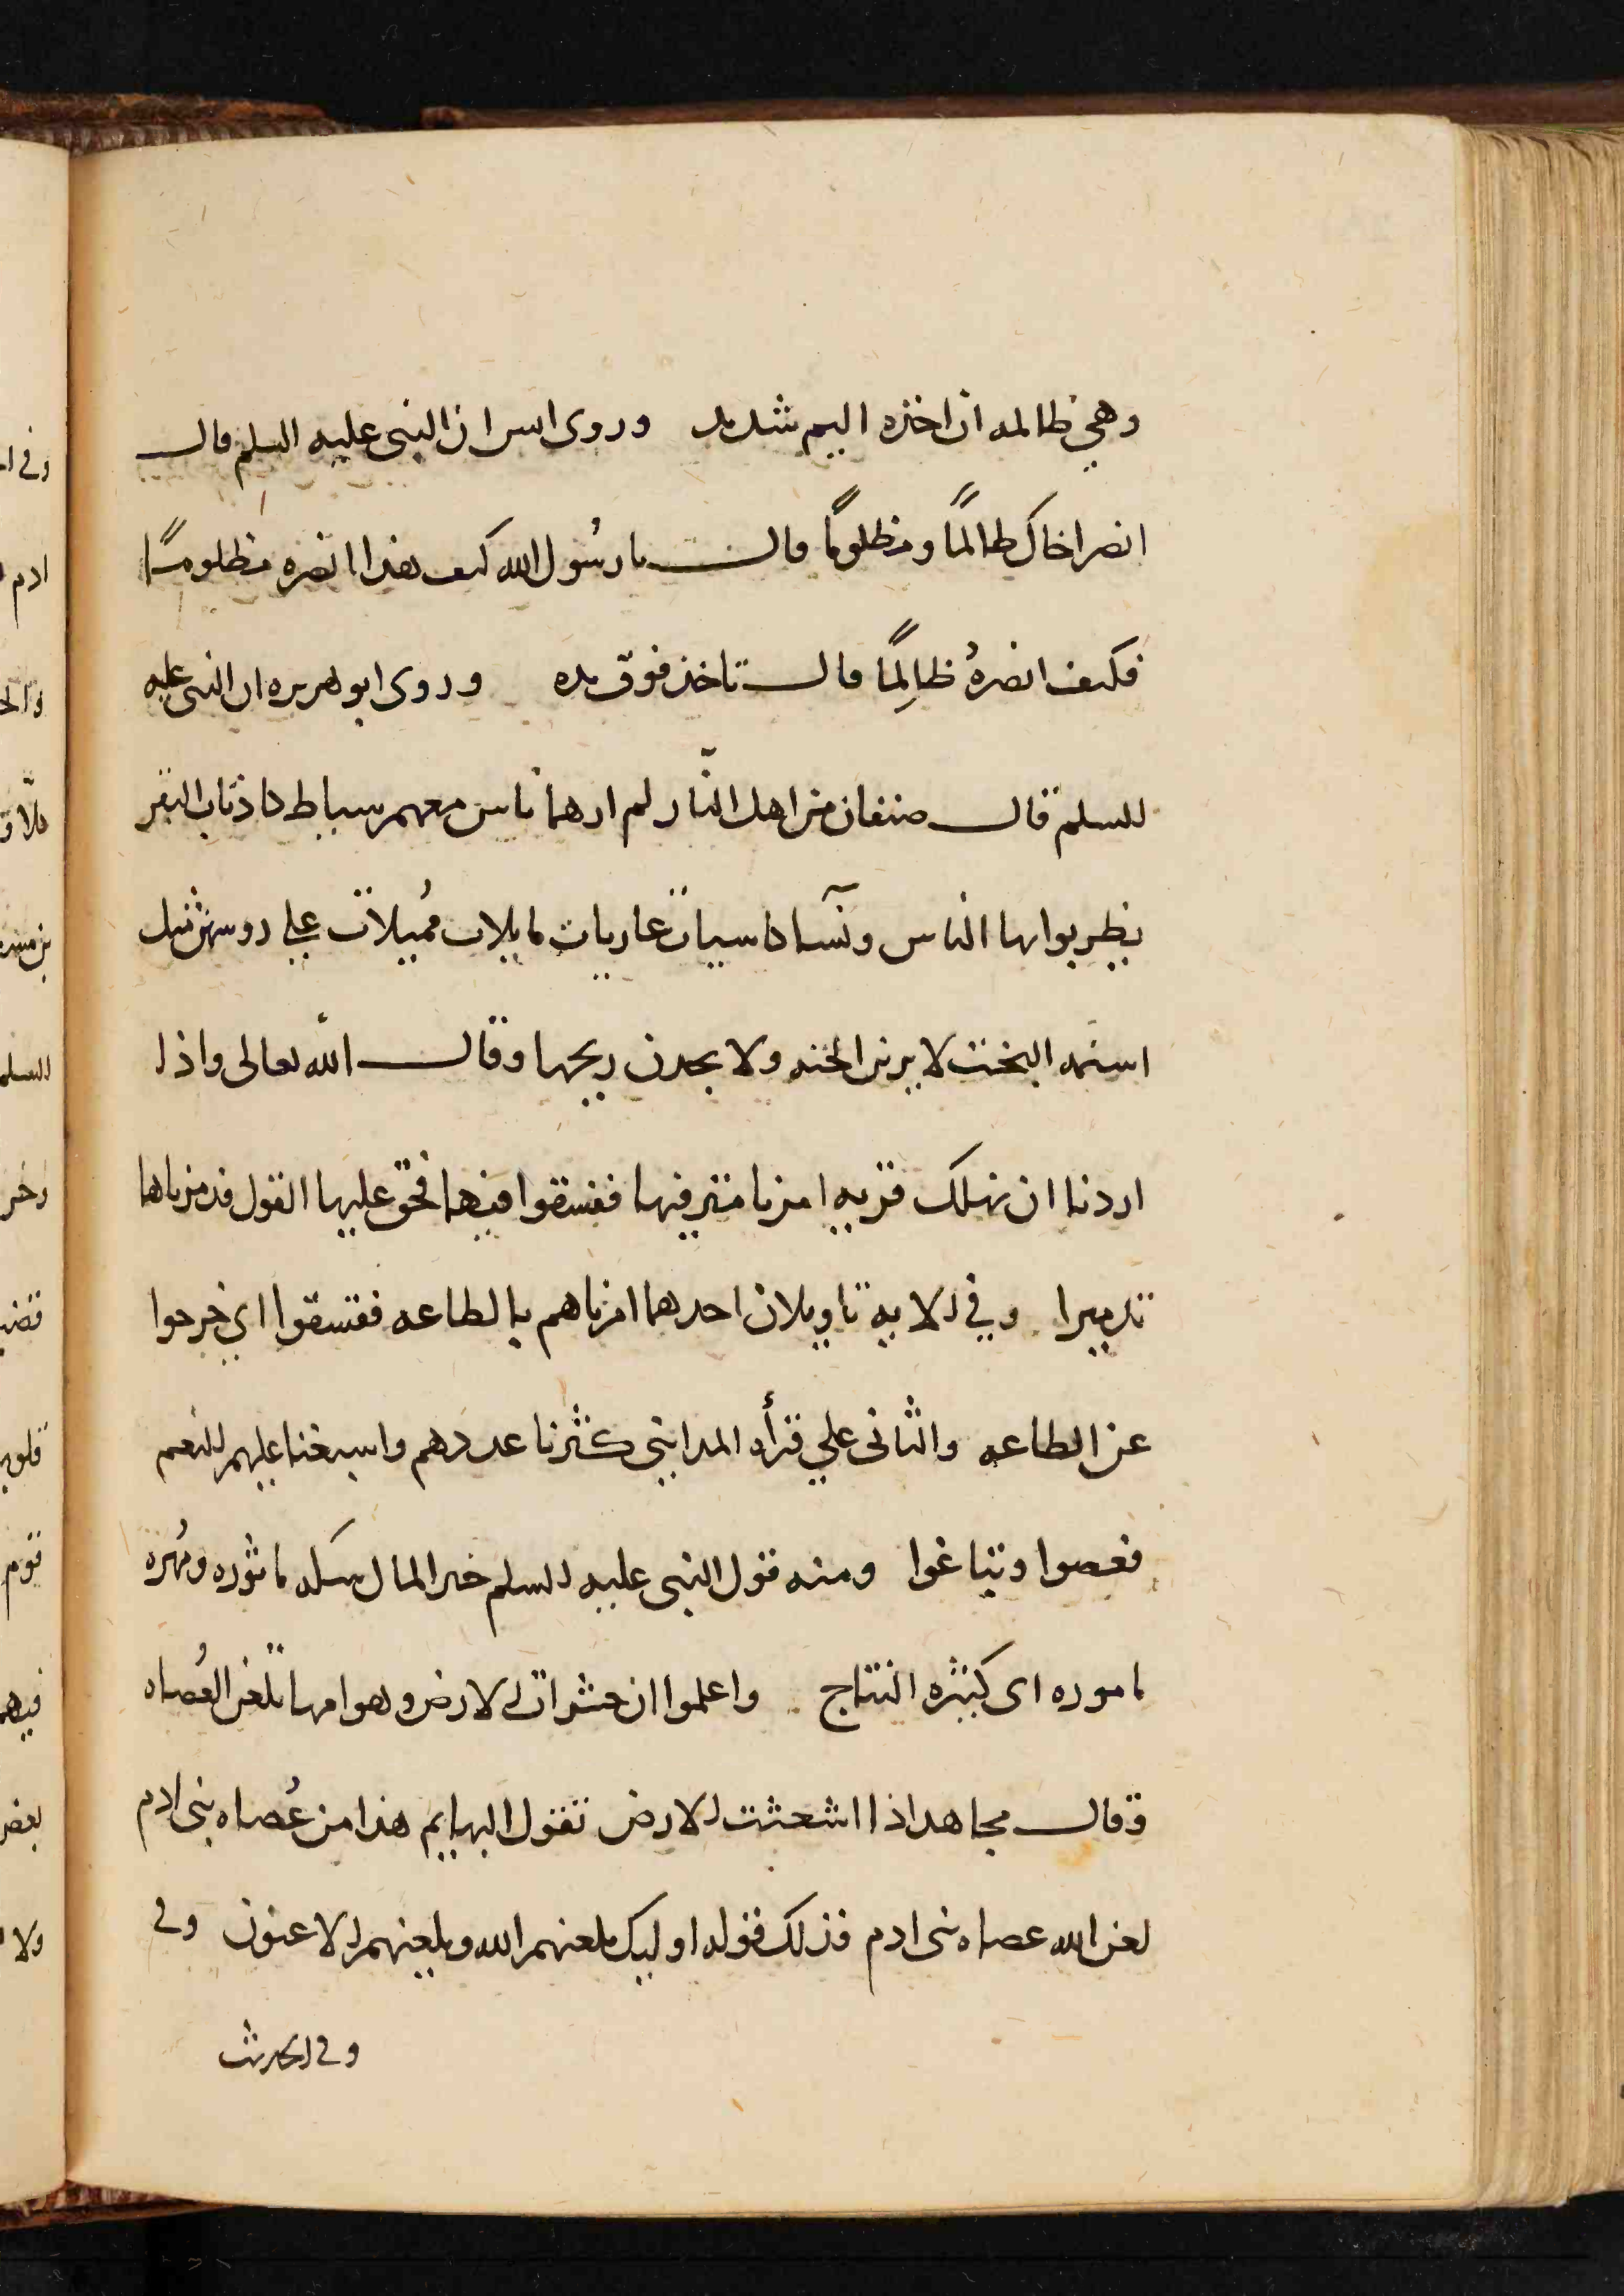 وهي ظالمه ان اخذه اليم شديد وروى انس ان النبى عليه السلم قال
انصر اخاك ظالمًا ومظلومًا قال يا رسُول الله كيف هذا انصره مظلومًا
فكيف انصرهُ ظالِمًا قال تاخذ فوق يده وروى ابو هريره ان النبى عليه
السلم قال صنفان من اهل النّار لم ارهما ناس معهم سياط كاذناب البقر
يظربوا بها الناس ونسآ كاسيات عاريات مايلات مُميلات على روسهن مثل
اسنمه البخت لا يرين الجنه ولا يجدن ريحها وقال الله تعالى واذا
اردنا ان نهلك قريه امرنا مترفيها ففسقوا فيها فحق عليها القول فدمرناها
تدميرا وفي الايه تاويلان احدهما امرناهم بالطاعه ففسقوا اي خرجوا
عن الطاعه والثانى علي قرأه المدايني كثرنا عددهم واسبغنا عليهم النعم
فعصوا وتباغوا ومنه قول النبى عليه السلم خير المال سكه مابُوره ومُهره
ماموره اى كثيره النتاج واعلموا ان حشرات الارض وهوامها تلعن العُصاه
وقال مجاهد اذا اشعثت الارض تقول البهايم هذا من عُصاه بنى ادم
لعن الله عصاه بنى ادم فذلك قوله اوليك يلعنهم الله ويلعنهم الاعنون وفى
وفى الحديث